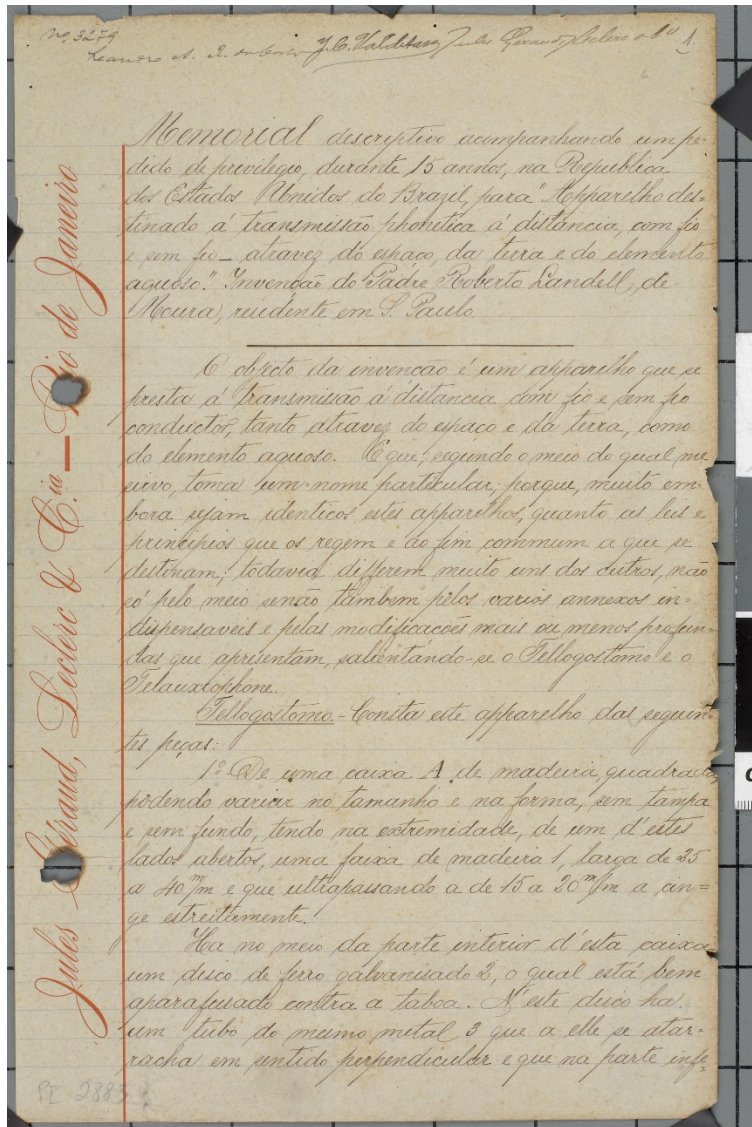 Nº 3279
J. C. Valdetaro Jules Géraud, Leclerc & Cⁱᵃ 1.
Memorial descriptivo acompanhando um pe-
dido de privilegio, durante 15 annos, na Republica
dos Estados Unidos do Brazil, para "Apparelho des-
tinado á transmissão phonetica á distancia, com fio
e sem fio - atravez do espaço, da terra e do elemento
aquoso". Invenção do Padre Roberto Landell, de
Moura, residente em S. Paulo
O objecto da invenção é um apparelho que se
presta á transmissão á distancia com fio e sem fio
conductor, tanto atravez do espaço e da terra, como
do elemento aquoso. E que, segundo o meio do qual me
sirvo, toma um nome particular; porque, muito em-
bora sejam identicos estes apparelhos, quanto as leis e
principios que os regem e ao fim commum a que se
destinam; todavia differem muito uns dos outros, não
só pelo meio senão tambem pelos varios annexos in-
dispensaveis e pelas modificacões mais ou menos profun-
das que apresentam, salientando-se o Tellogostomo e o
Telauxiophone.
Tellogostomo. - Consta este apparelho das seguin-
tes peças:
1º De uma caixa A de madeira, quadrada,
podendo variar no tamanho e na forma, sem tampa
e sem fundo, tendo na extremidade, de um d'estes
lados abertos, uma faixa de madeira 1, larga de 35
a 40 m/m e que ultrapassando a de 15 a 20 m/m a cin=
ge estreitamente.
Ha no meio da parte interior d'esta caixa
um disco de ferro galvanisado 2, o qual está bem
aparafusado contra a taboa. N'este disco ha
um tubo do mesmo metal 3 que a elle se atar-
racha em sentido perpendicular e que na parte infe-
Jules Géraud, Leclerc & Cⁱᵃ — Rio de Janeiro
PI 2883